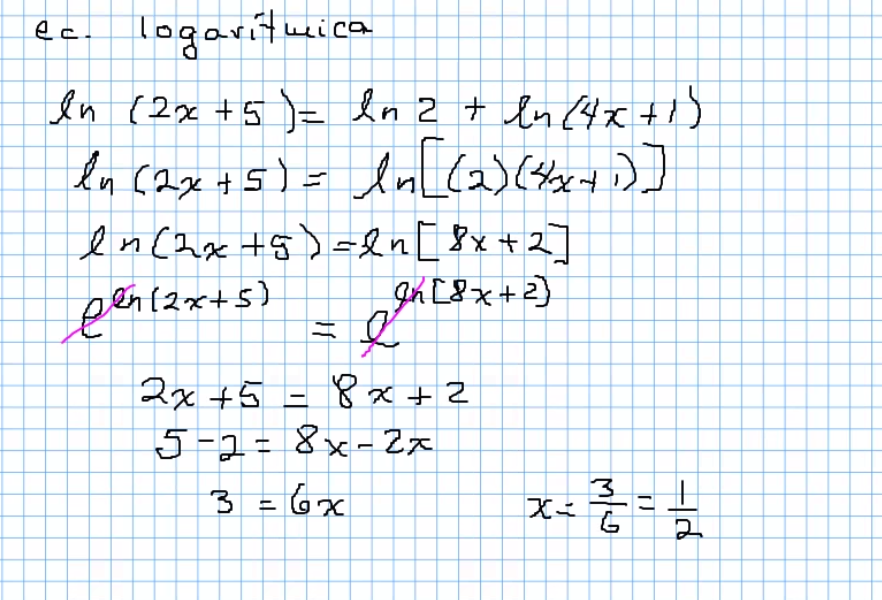 ec. logarítmica
ln (2x + 5) = ln 2 + ln(4x + 1)
ln (2x + 5) = ln[(2)(4x + 1)]
ln(2x + 5) = ln[8x + 2]
e^ln(2x + 5) = e^ln[8x + 2)
2x + 5 = 8x + 2
5 - 2 = 8x - 2x
3 = 6x x = 3/6 = 1/2